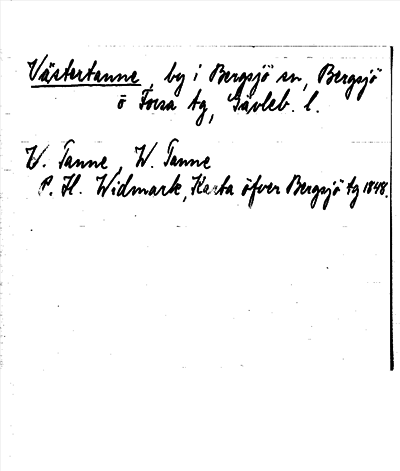 Västertanne, by i Bergsjö sn, Bergsjö
o Forsa tg, Gävleb. l.
W. Tanne, W. Tanne
P. H. Widmark, Karta öfver Bergsjö tg 1848.